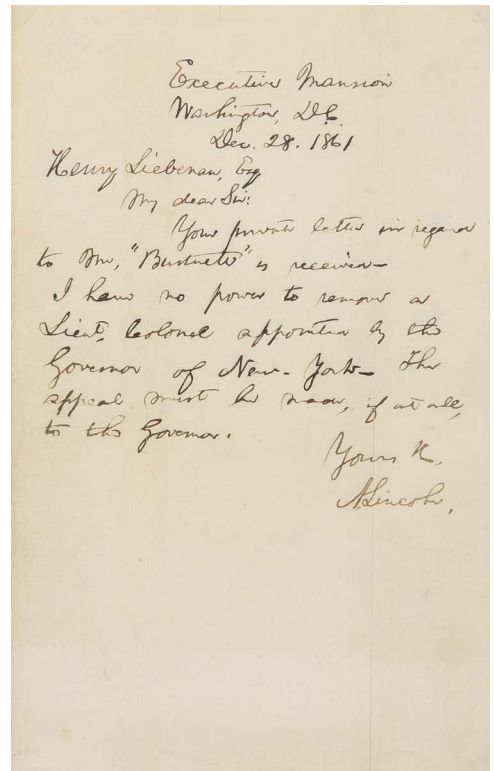 Executive Mansion
Washington, D.C.
Dec. 28. 1861
Henry Liebenau, Esq
My dear Sir:
Your private letter in regard
to Mr, " " is received—
I have no power to remove a
Lieut, Colonel appointed by the
Governor of New-York— The
appeal must be made, if at all,
to the Governor.
Yours &c,
A. Lincoln,